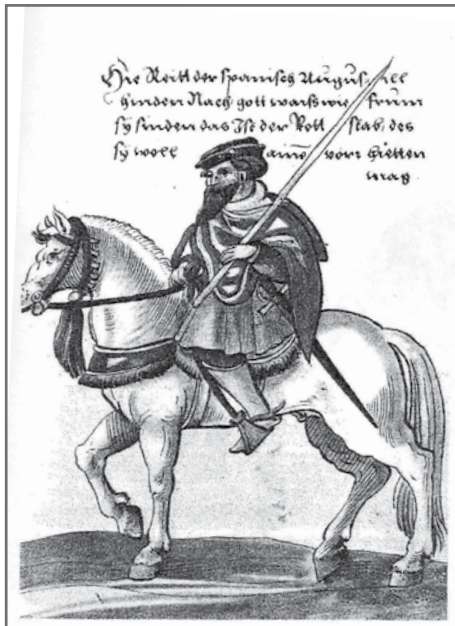 Hie Reitt der spanisch Augusill
hinden Nach gott waiss wie frum
sy sinden das Ist der Rott stab des
sy woll ainē vorr hietten
mag